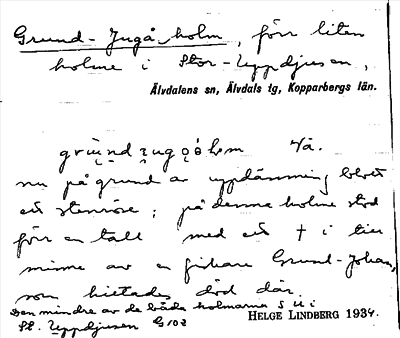 Grund-Jugå holm, förr liten
holme i Stor-Uppdjusen,
Älvdalens sn, Älvdals tg, Kopparbergs län.
nu på grund av uppdämning blott
ett stenröse; på denna holme stod
förr en tall med ett † i till
minne av en fiskare Grund-Johan,
som hittades död där.
Den mindre av de båda holmarna S ii i
St. Uppdjusen G102
HELGE LINDBERG 1934.